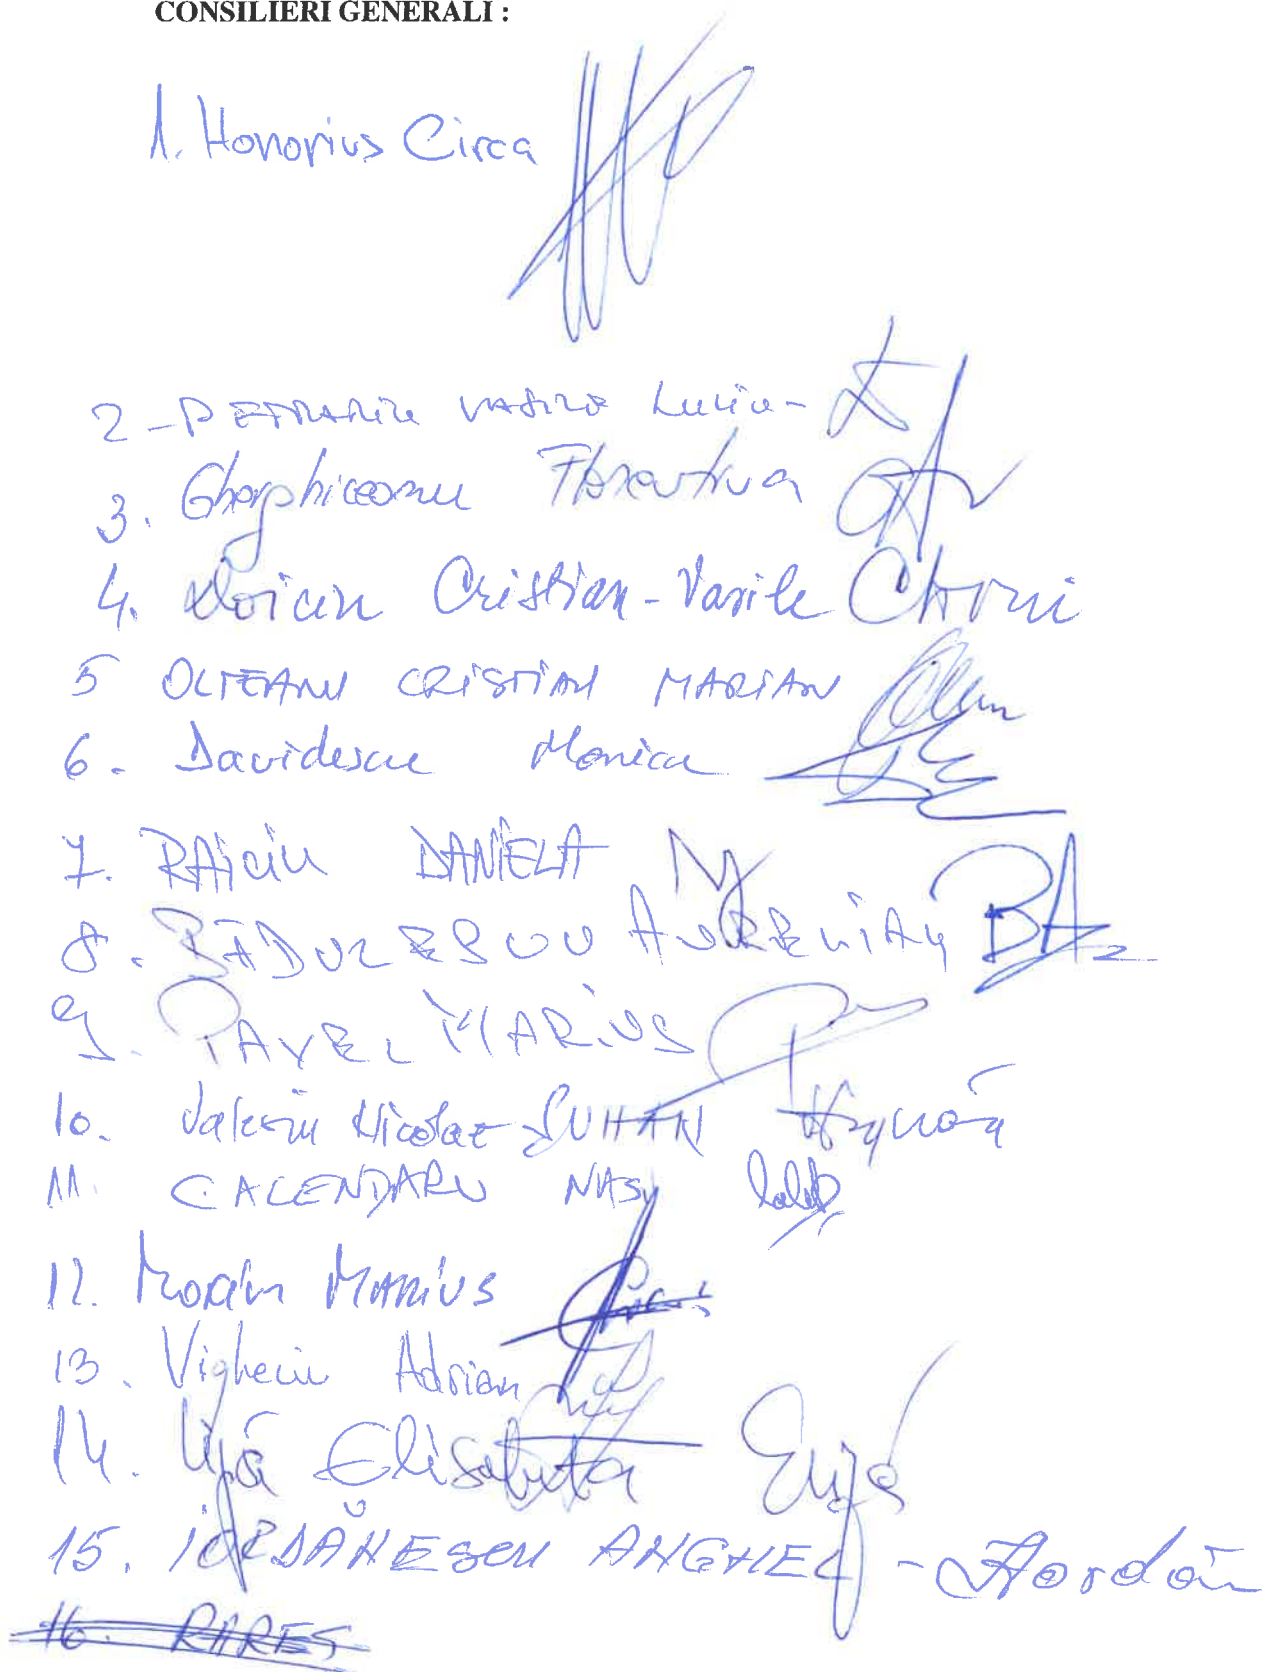 CONSILIERI GENERALI :
1. Honorius Circa
2 - PETRARIU VASILE Luciu -
3. Florentina
4. Doiciu Cristian-Vasile
5 OLTEANU CRISTIAN MARIAN
6. Davidescu Monica
7. RAiciu DANiELA
8. BĂDULESCU AURELIAN
9. PAVEL MARiUS
10. Valeriu Nicolae SUHAN
11. CALENDARU NASY
12. Moraru MARiUS
13. Vigheciu Adrian
14. Ujă Elisabeta
15. IORDĂNESCU ANGHEL -
16. RARES